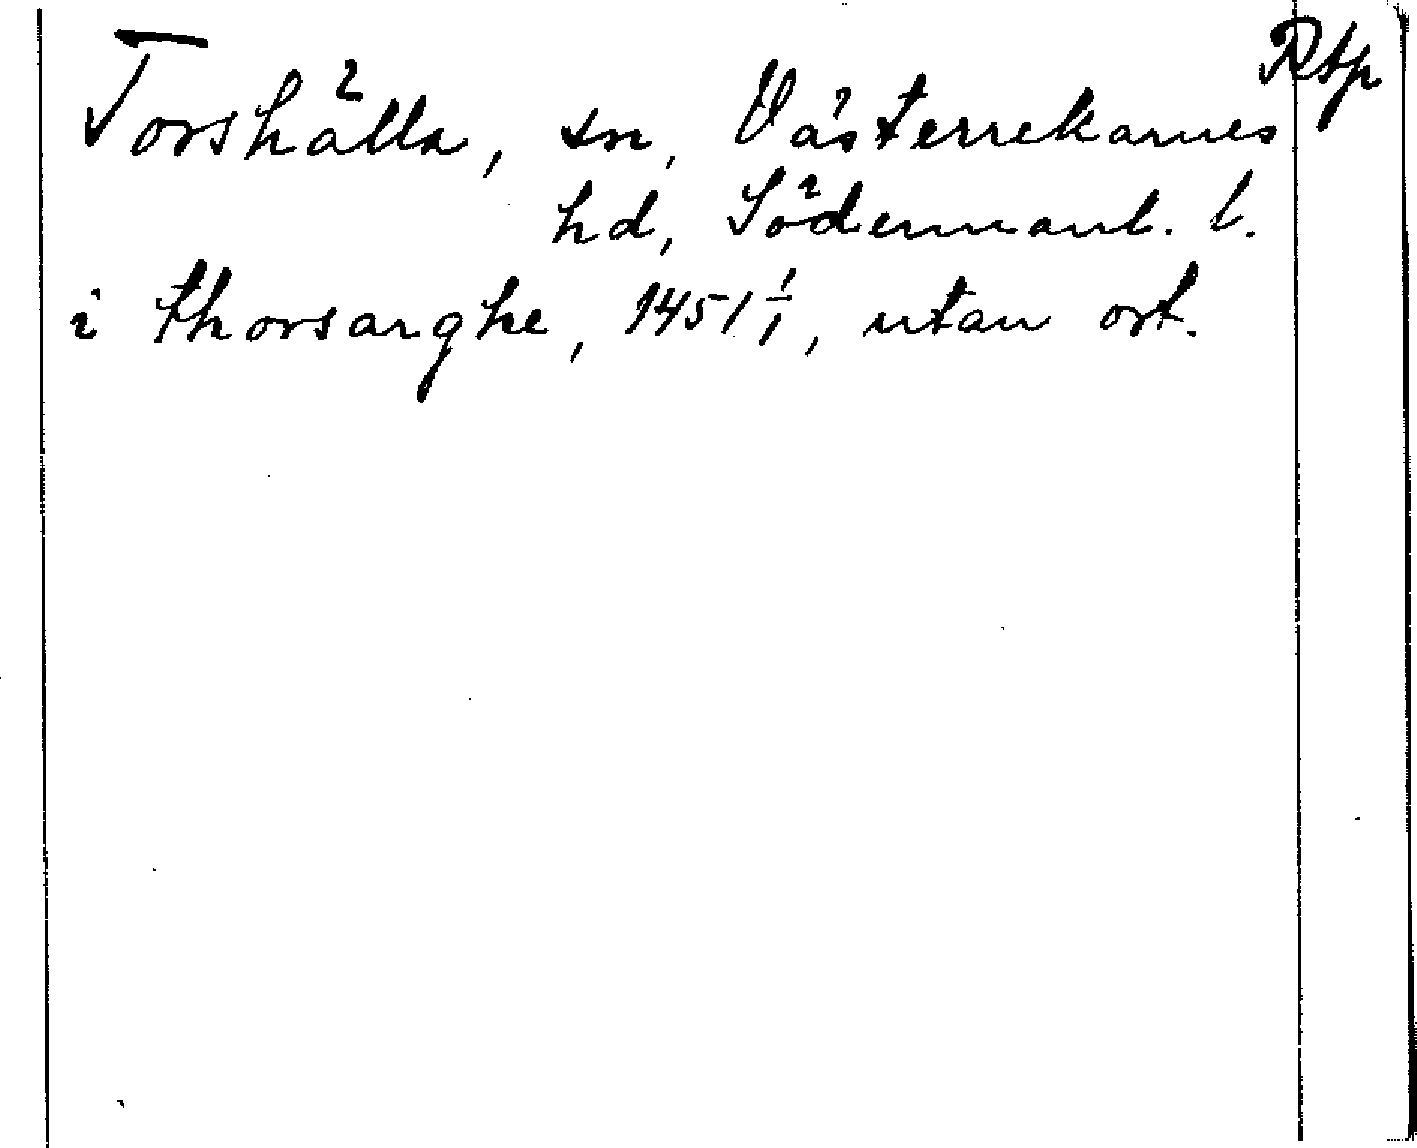 Rtp
Torshälla, sn, Västerrekarnes
hd, Södermanl. l.
i thorsarghe, 1451 1/1, utan ort.